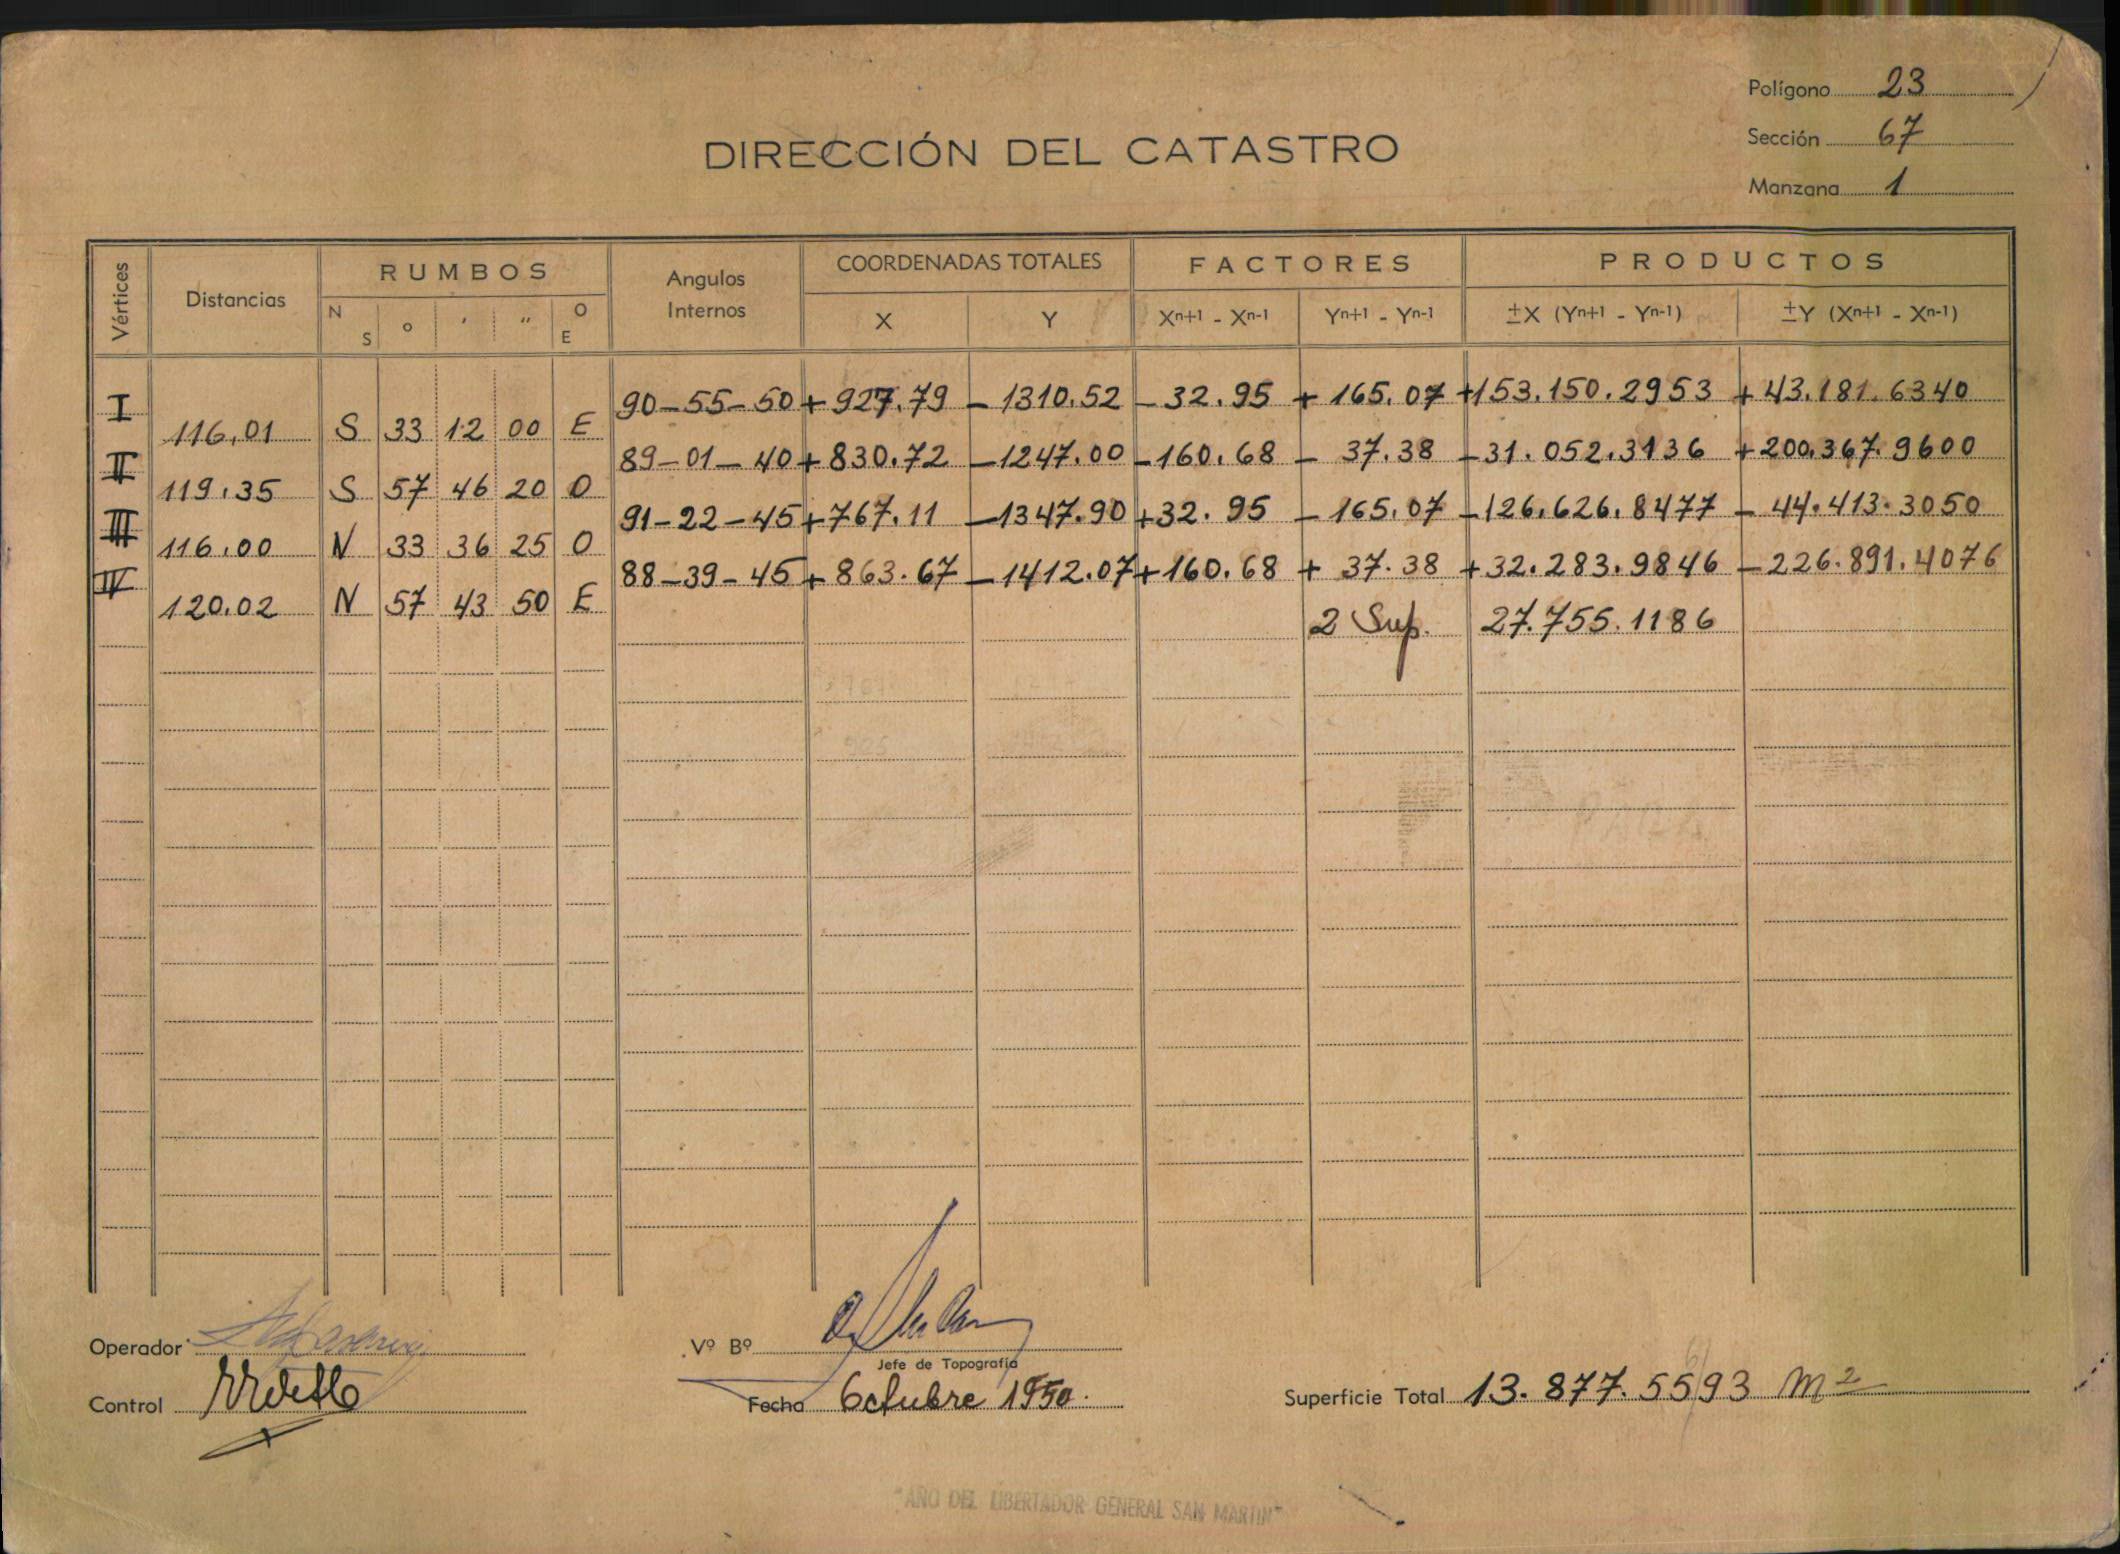 Polígono 23
Sección 67
Manzana 1
DIRECCIÓN DEL CATASTRO
Vértices Distancias RUMBOS Angulos Internos COORDENADAS TOTALES FACTORES PRODUCTOS
N S o ′ ″ O E X Y Xn+1 - Xn-1 Yn+1 - Yn-1 ±X (Yn+1 - Yn-1) ±Y (Xn+1 - Xn-1)
I 90-55-50 +927.79 -1310.52 -32.95 +165.07 +153.150.2953 +43.181.6340
116,01 S 33 12 00 E
II 89-01-40 +830.72 -1247.00 -160.68 -37.38 -31.052.3136 +200.367.9600
119,35 S 57 46 20 O
III 91-22-45 +767.11 -1347.90 +32.95 -165.07 -126.626.8477 -44.413.3050
116,00 N 33 36 25 O
IV 88-39-45 +863.67 -1412.07 +160.68 +37.38 +32.283.9846 -226.891.4076
120.02 N 57 43 50 E
2 Sup. 27.755.1186
Operador
Vº Bº
Jefe de Topografía
Control
Fecha Octubre 1950.
Superficie Total 13.877.5593 m2
"AÑO DEL LIBERTADOR GENERAL SAN MARTIN"